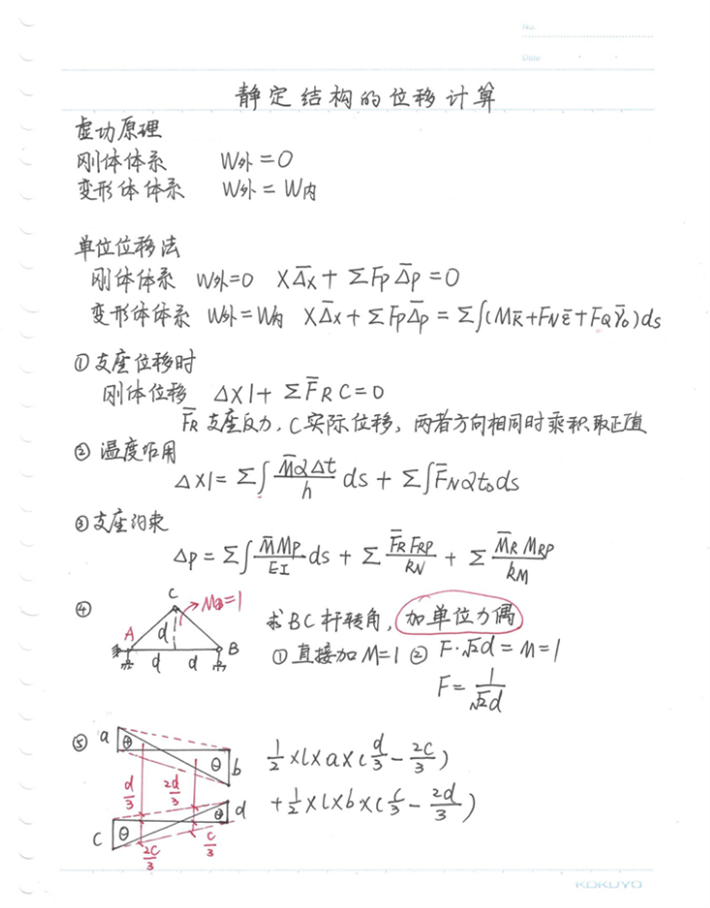 No.
Date
静定结构的位移计算
虚功原理
刚体体系 W外=0
变形体体系 W外=W内
单位位移法
刚体体系 W外=0 X Δ̄x + ΣFp Δ̄p = 0
变形体体系 W外=W内 X Δ̄x + ΣFp Δ̄p = Σ∫(Mκ̄+FN ε̄+FQ γ̄0)ds
①支座位移时
刚体位移 Δ×1+ΣF̄R C=0
F̄R 支座反力, C实际位移, 两者方向相同时乘积取正值
②温度作用
Δ×1=Σ∫ M̄αΔt/h ds + Σ∫F̄Nαt0ds
③支座约束
Δp=Σ∫ M̄Mp/EI ds + Σ F̄R FRP/kN + Σ M̄R MRP/kM
④
C
=1
A
d
B
d d
求BC杆转角, 加单位力偶
①直接加M=1 ② F·√2d=M=1
F=1/√2d
⑤
a ⊕ ⊖ b
d/3 2d/3
c ⊖ ⊕ d
2c/3 c/3
1/2×l×a×(d/3-2c/3)
+1/2×l×b×(c/3-2d/3)
KOKUYO